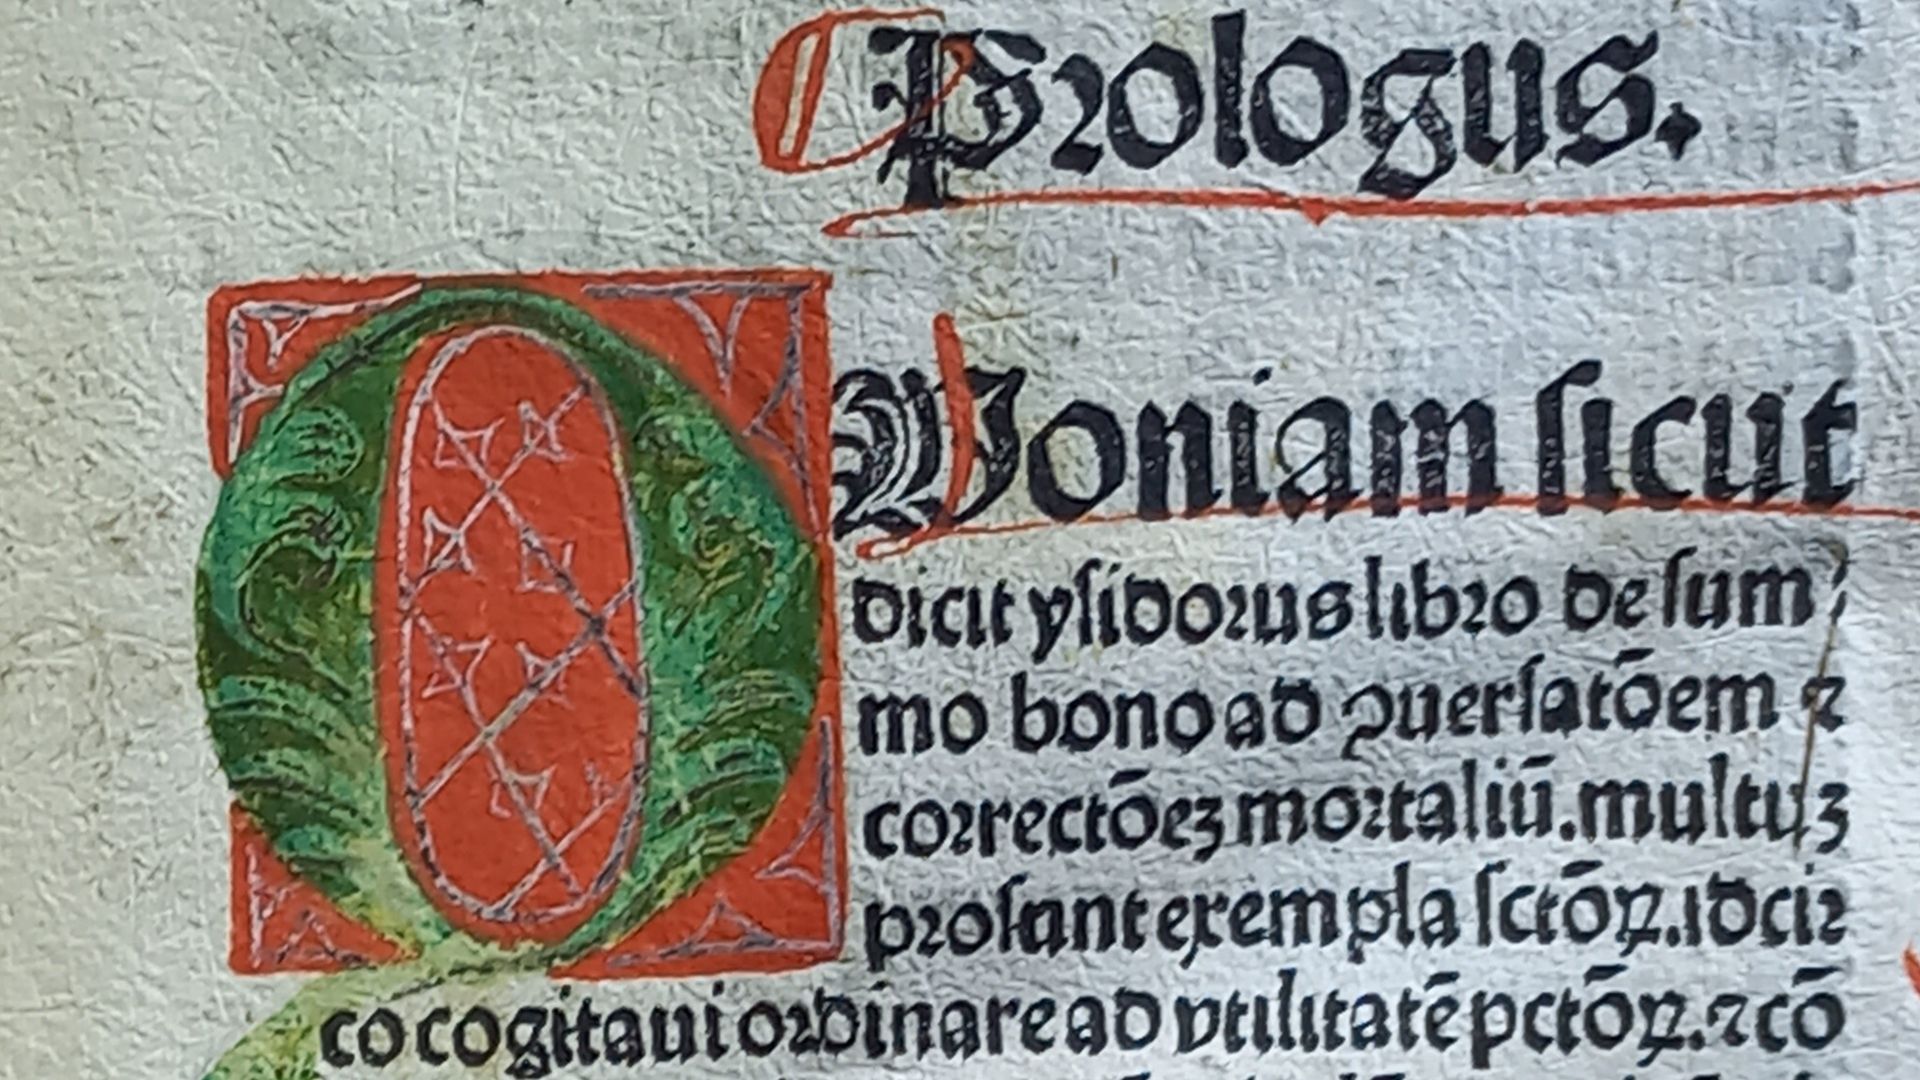 Prologus.
QUoniam sicut
dicit ysidorus libro de sum
mo bono ad ꝯuersatōem ⁊
correctōeꝫ mortaliū. multuꝫ
prosunt exempla sctōꝝ. idcir
co cogitaui ordinare ad vtilitatē pctōꝝ. ⁊ cō